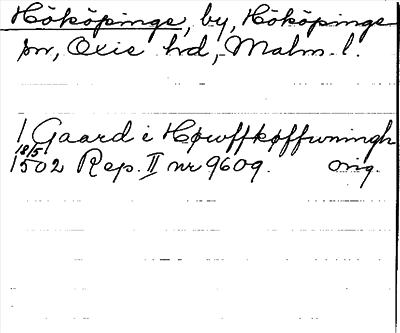 Hököpinge, by, Hököpinge
sn, Oxie hd, Malm. l.
1 Gaard i Høwffkøffwningh
18/5
1502 Rep. II nr 9609. orig.